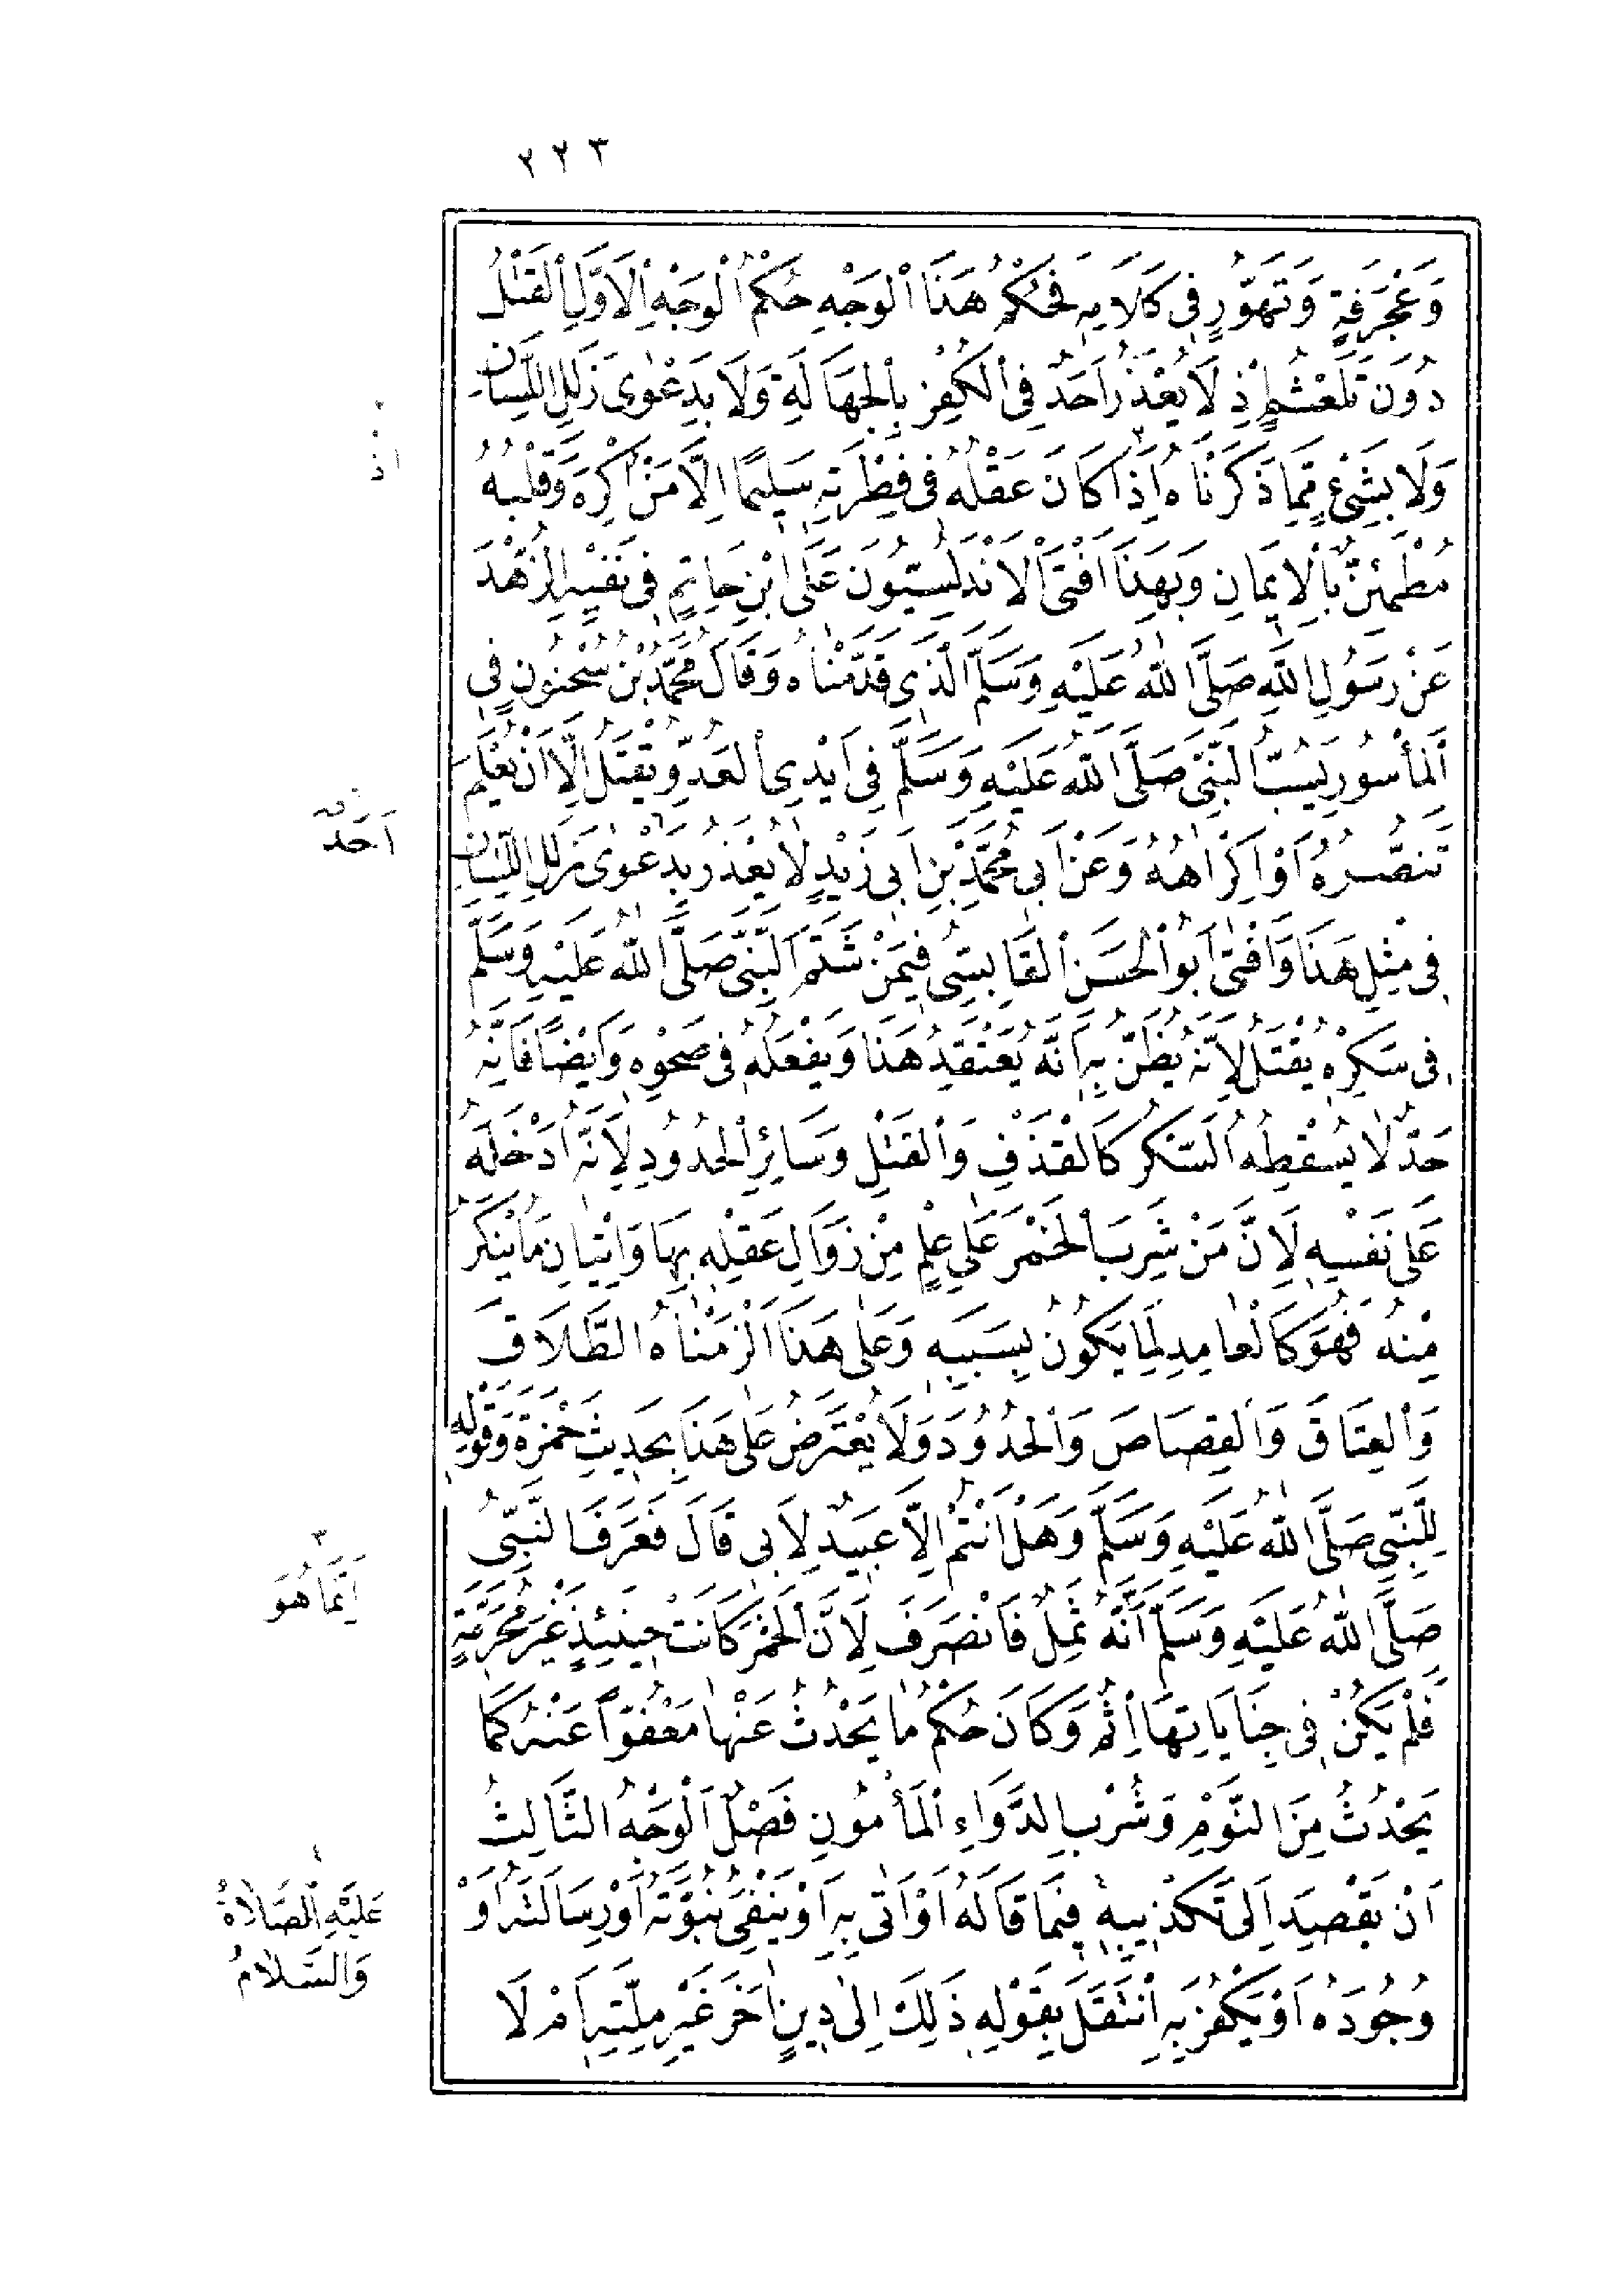 ٢٢٣
وَعَجْرَفَةٍ وَتَهَوُّرٍ فِى كَلَامِهِ فَحُكْمُ هَذَا الْوَجْهِ حُكْمُ الْوَجْهِ الْاَوَّلِ الْقَتْلُ
دُونَ تَلَعْثُمٍ اِذْ لَا يُعْذَرُ اَحَدٌ فِى الْكُفْرِ بِالْجَهَالَةِ وَلَا بِدَعْوٰى زَلَلِ اللِّسَانِ
وَلَا بِشَىْءٍ مِمَّا ذَكَرْنَاهُ اِذَا كَانَ عَقْلُهُ فِى فِطْرَتِهِ سَلِيمًا اِلَّا مَنْ اُكْرِهَ وَقَلْبُهُ
مُطْمَئِنٌّ بِالْاِيمَانِ وَبِهَذَا اَفْتَى الْاَنْدَلُسِيُّونَ عَلَى ابْنِ حَاتِمٍ فِى نَفْيِهِ الزُّهْدَ
عَنْ رَسُولِ اللّٰهِ صَلَّى اللّٰهُ عَلَيْهِ وَسَلَّمَ الَّذِى قَدَّمْنَاهُ وَقَالَ مُحَمَّدُ بْنُ سُحْنُونٍ فِى
الْمَأْسُورِ يَسُبُّ النَّبِىَّ صَلَّى اللّٰهُ عَلَيْهِ وَسَلَّمَ فِى اَيْدِى الْعَدُوِّ يُقْتَلُ اِلَّا اَنْ يُعْلَمَ
تَنَصُّرُهُ اَوْ اِكْرَاهُهُ وَعَنْ اَبِى مُحَمَّدِ بْنِ اَبِى زَيْدٍ لَا يُعْذَرُ بِدَعْوٰى زَلَلِ اللِّسَانِ
فِى مِثْلِ هَذَا وَاَفْتٰى اَبُو الْحَسَنِ الْقَابِسِىُّ فِيمَنْ شَتَمَ النَّبِىَّ صَلَّى اللّٰهُ عَلَيْهِ وَسَلَّمَ
فِى سَكْرِهِ يُقْتَلُ لِاَنَّهُ يُظَنُّ بِهِ اَنَّهُ يَعْتَقِدُ هَذَا وَيَفْعَلُهُ فِى صَحْوِهِ وَاَيْضًا فَاِنَّهُ
حَدٌّ لَا يُسْقِطُهُ السُّكْرُ كَالْقَذْفِ وَالْقَتْلِ وَسَائِرِ الْحُدُودِ لِاَنَّهُ اَدْخَلَهُ
عَلٰى نَفْسِهِ لِاَنَّ مَنْ شَرِبَ الْخَمْرَ عَلٰى عِلْمٍ مِنْ زَوَالِ عَقْلِهِ بِهَا وَاِتْيَانِ مَا يُنْكَرُ
مِنْهُ فَهُوَ كَالْعَامِدِ لِمَا يَكُونُ بِسَبَبِهِ وَعَلٰى هَذَا اَلْزَمْنَاهُ الطَّلَاقَ
وَالْعِتَاقَ وَالْقِصَاصَ وَالْحُدُودَ وَلَا يُعْتَرَضُ عَلٰى هَذَا بِحَدِيثِ حَمْزَةَ وَقَوْلِهِ
لِلنَّبِىِّ صَلَّى اللّٰهُ عَلَيْهِ وَسَلَّمَ وَهَلْ اَنْتُمْ اِلَّا عَبِيدٌ لِاَبِى قَالَ فَعَرَفَ النَّبِىُّ
صَلَّى اللّٰهُ عَلَيْهِ وَسَلَّمَ اَنَّهُ ثَمِلٌ فَانْصَرَفَ لِاَنَّ الْخَمْرَ كَانَتْ حِينَئِذٍ غَيْرَ مُحَرَّمَةٍ
فَلَمْ يَكُنْ فِى جِنَايَاتِهَا اِثْمٌ وَكَانَ حُكْمُ مَا يَحْدُثُ عَنْهَا مَعْفُوًّا عَنْهُ كَمَا
يَحْدُثُ مِنَ النَّوْمِ وَشُرْبِ الدَّوَاءِ الْمَأْمُونِ فَصْلٌ الْوَجْهُ الثَّالِثُ
اَنْ يَقْصِدَ اِلٰى تَكْذِيبِهِ فِيمَا قَالَهُ اَوْ اَتٰى بِهِ اَوْ يَنْفِىَ نُبُوَّتَهُ اَوْ رِسَالَتَهُ اَوْ
وُجُودَهُ اَوْ يَكْفُرَ بِهِ انْتَقَلَ بِقَوْلِهِ ذَلِكَ اِلٰى دِينٍ اٰخَرَ غَيْرِ مِلَّتِهِ اَمْ لَا
اذ
اَحَد
٣
اِنَّمَا هُوَ
٤
عَلَيْهِ الصَّلَاةُ
وَالسَّلَامُ